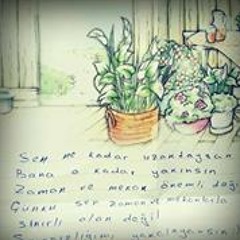 Sen ne kadar uzaktaysan
Bana o kadar yakınsın
Zaman ve mekan önemli değil
Çünkü sen zaman ve mekanla
sınırlı olan değil